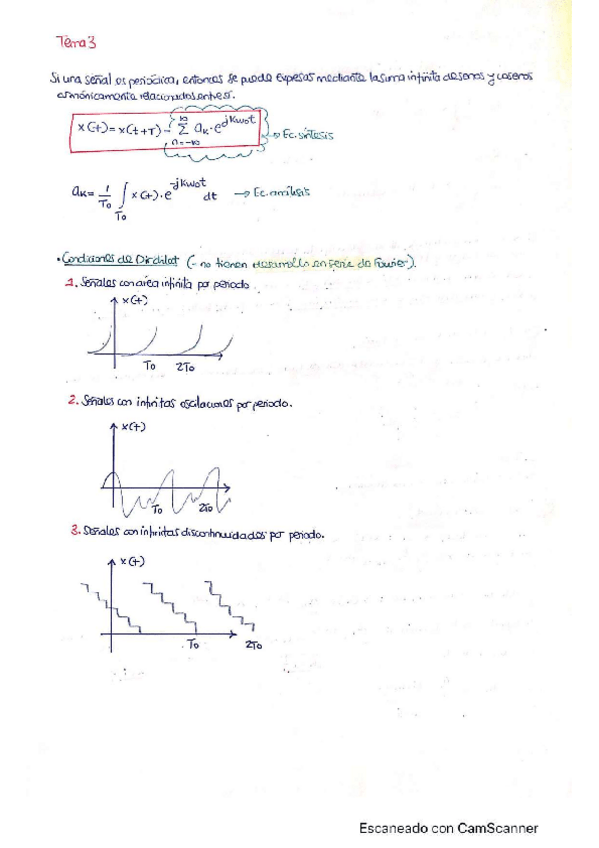 Tema 3
Si una señal es periódica, entonces se puede expresas mediante la suma infinita de senos y cosenos
armónicamente relacionados entre sí.
x(t) = x(t+T) = ∑ aₖ·e^{jkω₀t} → Ec. síntesis
n=-∞
aₖ = 1/T₀ ∫_{T₀} x(t)·e^{-jkω₀t} dt → Ec. análisis
• Condiciones de Dirichlet (- no tienen desarrollo en serie de Fourier).
1. Señales con área infinita por periodo.
x(t)
T₀ 2T₀
2. Señales con infinitas oscilaciones por periodo.
x(t)
T₀ 2T₀
3. Señales con infinitas discontinuidades por periodo.
x(t)
T₀ 2T₀
Escaneado con CamScanner